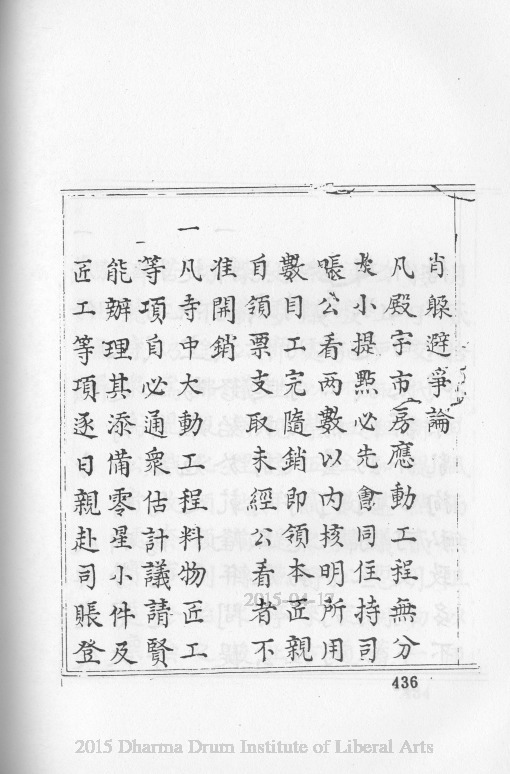 肖躲避爭論
凡殿宇市房應動工程無分
大小提點必先會同住持司
賬公看两數以內核明所用
數目工完隨銷即領本匠親
自領票支取未經公看者不
准開銷
一凡寺中大動工程料物匠工
等項自必通衆估計議請賢
能辦理其添備零星小件及
匠工等項逐日親赴司賬登
436
2015-04-17
2015 Dharma Drum Institute of Liberal Arts